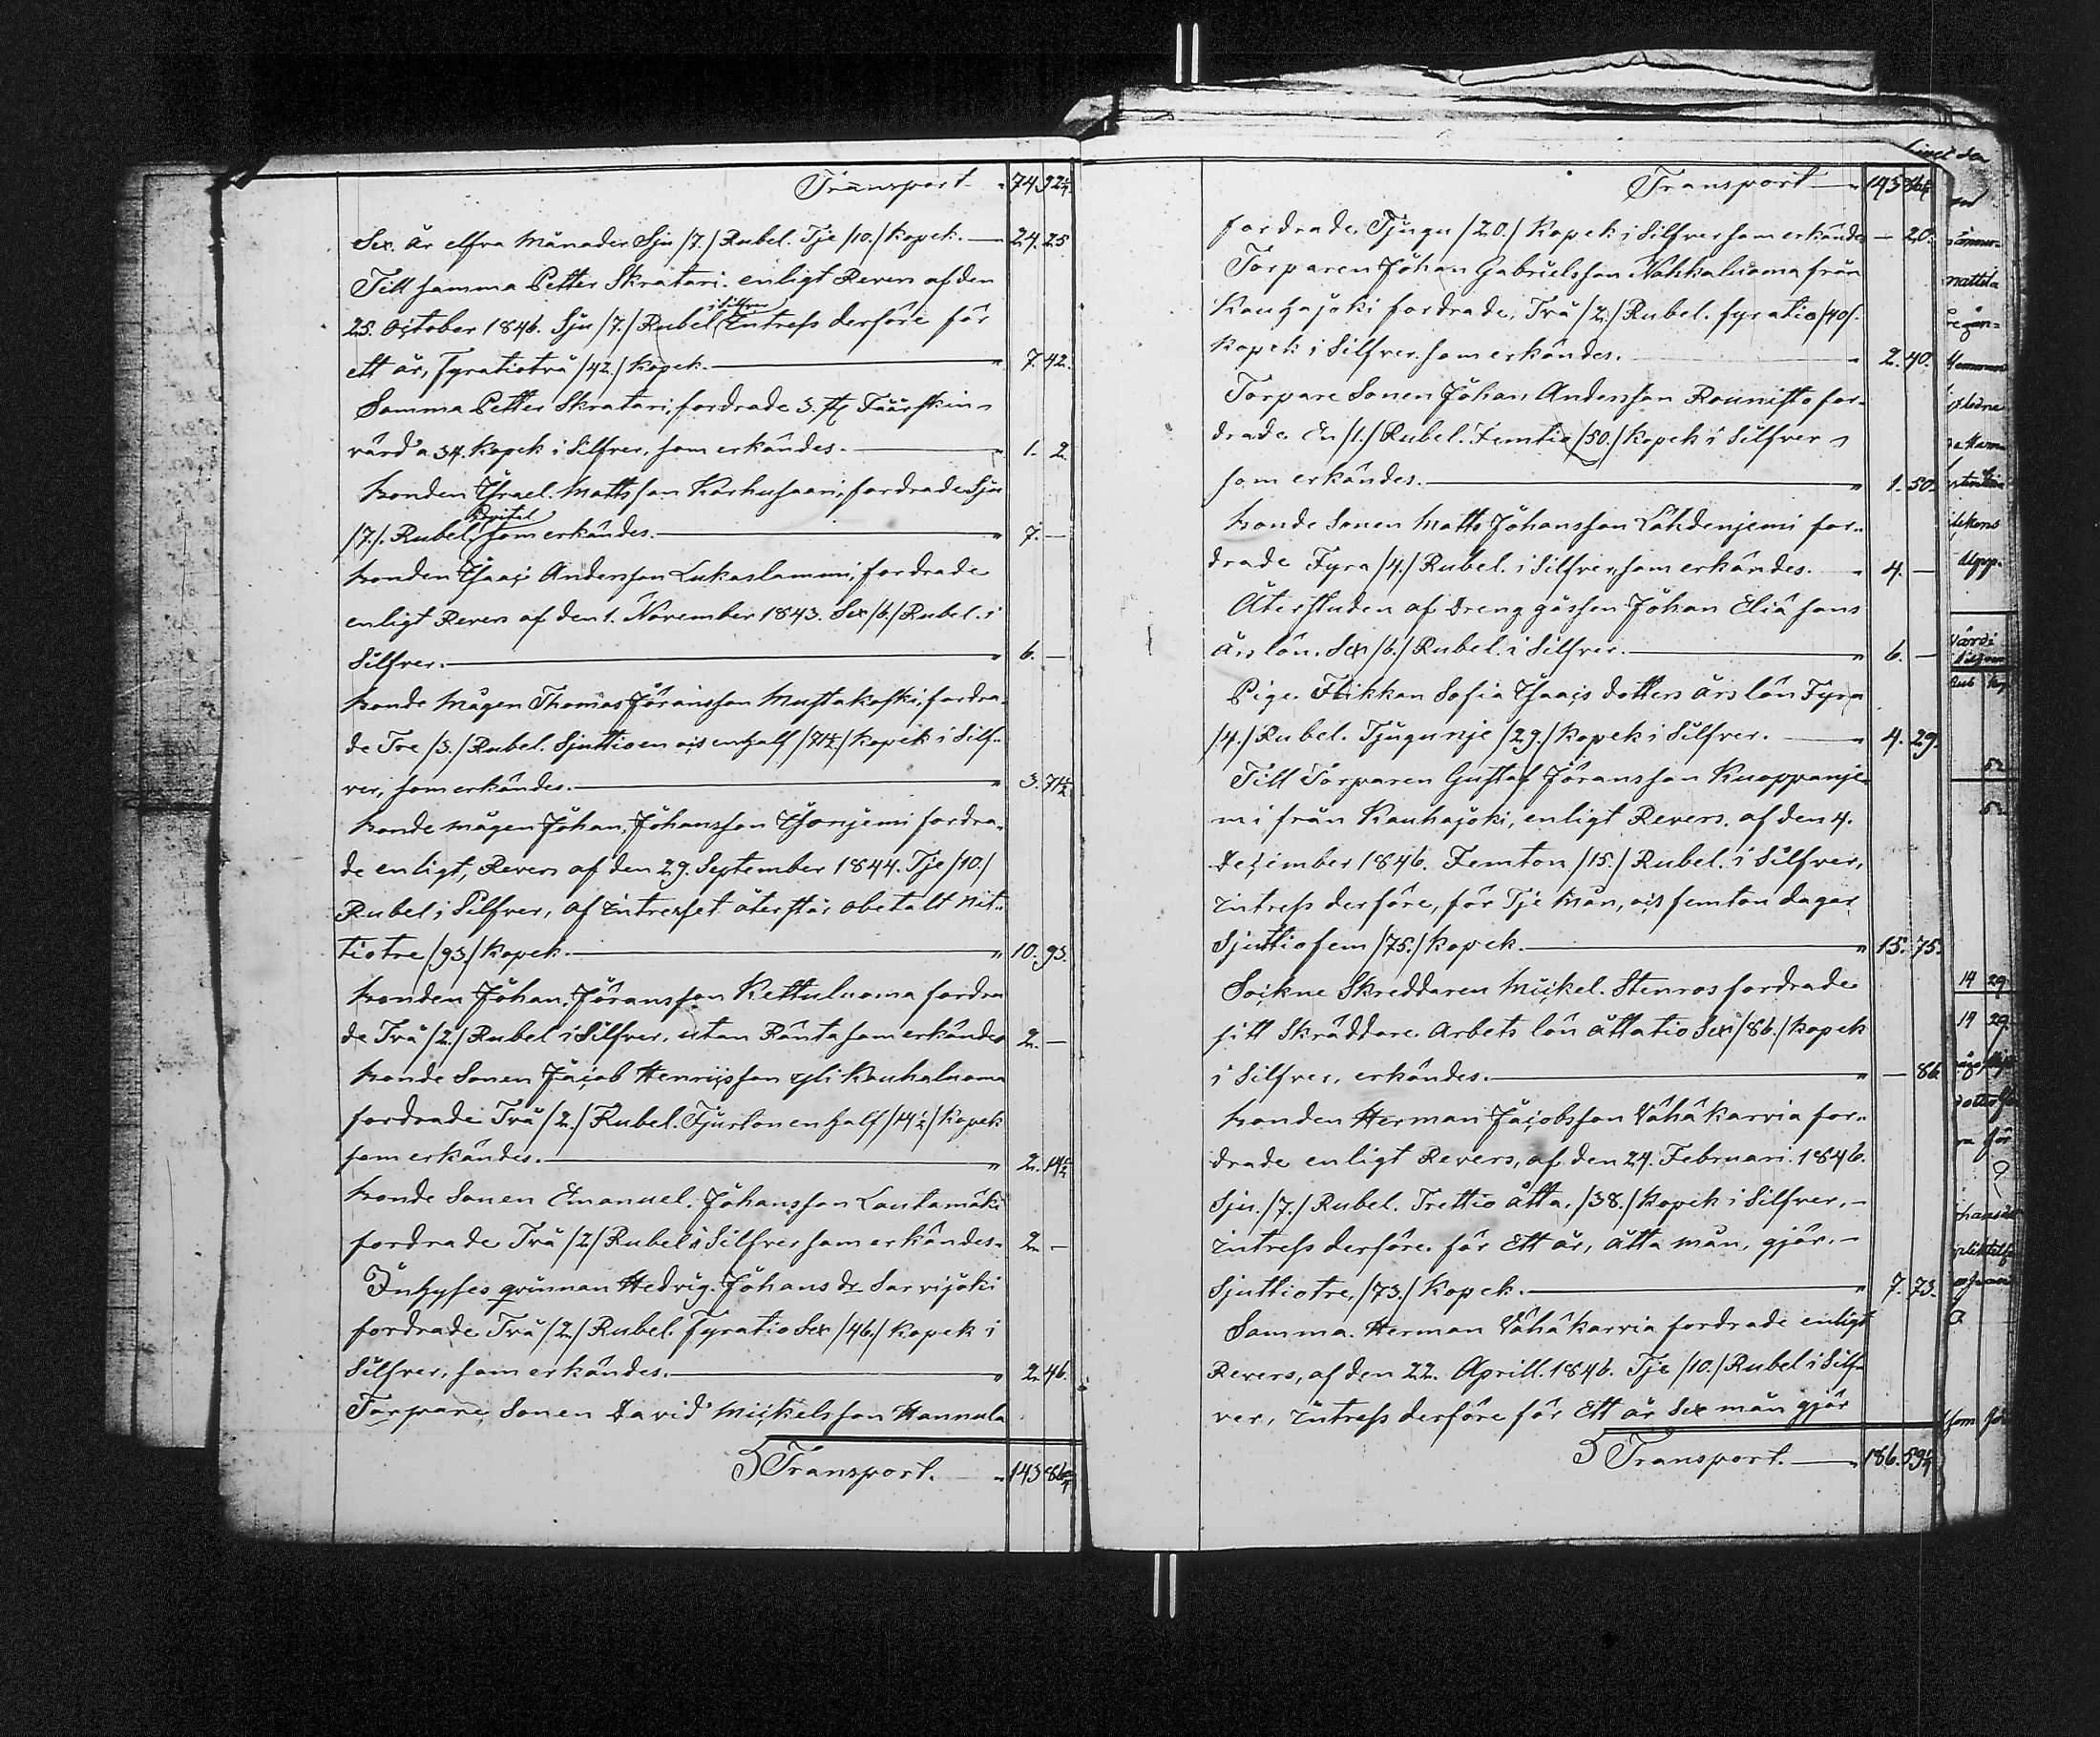 Transport 74. 92¼
Sex. år elfva Månader Sju /7./ Rubel. Tje /10./ Kopek. 24. 25
Till samma Petter Skratari. enligt Revers af den
i Silfver
25. October 1846. Sju /7./ Rubel Intress derföre för
ett år, Fyratiotvå /42./ Kopek. 7. 42.
Samma Petter Skratari, fordrade 3. st Fäärskin
värd a 34. Kopek i Silfver, som erkändes. 1. 2.
Bonden Israel. Mattsson Karhusaari, fordrade Sju
Kapital
/7./. Rubel, som erkändes. 7. —
Bonden Isaac Andersson Lukaslammi, fordrade
enligt Revers af den 1. November 1843. Sex /6./ Rubel. i
Silfver. 6. —
Bonde Mågen Thomas Jöransson Mustakoski, fordra-
de Tre /3./ Rubel. Sjuttioen och en half /71½/ Kopek i Silf-
ver, som erkändes. 3. 71½
Bonde mågen Johan. Johansson Isonjemi fordra-
de enligt, Revers af den 29. September 1844. Tje /10./
Rubel i Silfver, af Intresset återstår obetalt Nit-
tiotre /93./ Kopek. 10. 93.
Bonden Johan. Jöransson Kettuluoma fordra
de Två /2./ Rubel i Silfver. utan Ränta som erkändes 2. —
Bonde Sonen Jacob Henricsson Yli Kauhaluoma
fordrade Två /2./ Rubel. Fjurton en half /14½/ Kopek
som erkändes. 2. 14½
Bonde Sonen Emanuel. Johansson Lautamäki
fordrade Två /2./ Rubel i Silfver som erkändes. 2. —
Inhyses qvinnan Hedvig. Johans dr Sarvijoki
fordrade Två /2./ Rubel. Fyratio Sex /46./ Kopek i
Silfver. som erkändes. 2. 46.
Torpare Sonen David Mickelsson Hannula
Transport. 143 86¼
Transport 143 86¼
fordrade, Tjugu /20./ Kopek i Silfver som erkändes — 20.
Torparen Johan Gabrielsson Nahkaluoma från
Kauhajoki fordrade, Två /2./ Rubel. fyratio /40/.
Kopek i Silfver. som erkändes. 2. 40.
Torpare Sonen Johan Andersson Rounisto for-
drade. En /1./ Rubel. Femtio /50./ Kopek i Silfver
som erkändes. 1. 50.
Bonde Sonen Matts Johansson Lähdenjemi for-
drade Fyra /4./ Rubel. i Silfver, som erkändes. 4. —
Återstuden af Dreng gåssen Johan Eliä sons
års lön. Sex /6./ Rubel. i Silfver. 6. —
Pige. Flikkan Sofia Isaacs dotters års lön Fyra
/4./ Rubel. Tjugunje /29./ Kopek i Silfver. 4. 29.
Till Torparen Gustaf Jöransson Knoppanje-
mi från Kauhajoki, enligt Revers. af den 4.
December 1846. Femton /15./ Rubel. i Silfver,
Intress derföre, för Tje mån, och femton dagar
Sjuttiofem /75./ Kopek. 15. 75.
Sockne Skreddaren Mickel. Stenros fordrade
sitt Skräddare Arbets lön åttatio Sex /86./ Kopek
i Silfver, erkändes. — 86.
Bonden Herman Jacobsson Vähä karvia for-
drade enligt Revers, af den 24. Februari. 1846.
Sju. /7./ Rubel. Trettio åtta. /38./ Kopek i Silfver.
Intress derföre. för Ett år, åtta mån, gjör.
Sjuttiotre, /73./ Kopek. 7. 73.
Samma. Herman Vähä karvia fordrade enligt
Revers, af den 22. Aprill. 1846. Tje /10./ Rubel i Silf-
ver, Intress derföre för Ett år Sex mån gjör
Transport. 186. 59¼
mattila
Värdi
Rub Kop
52
52
14 29
14 29.
för